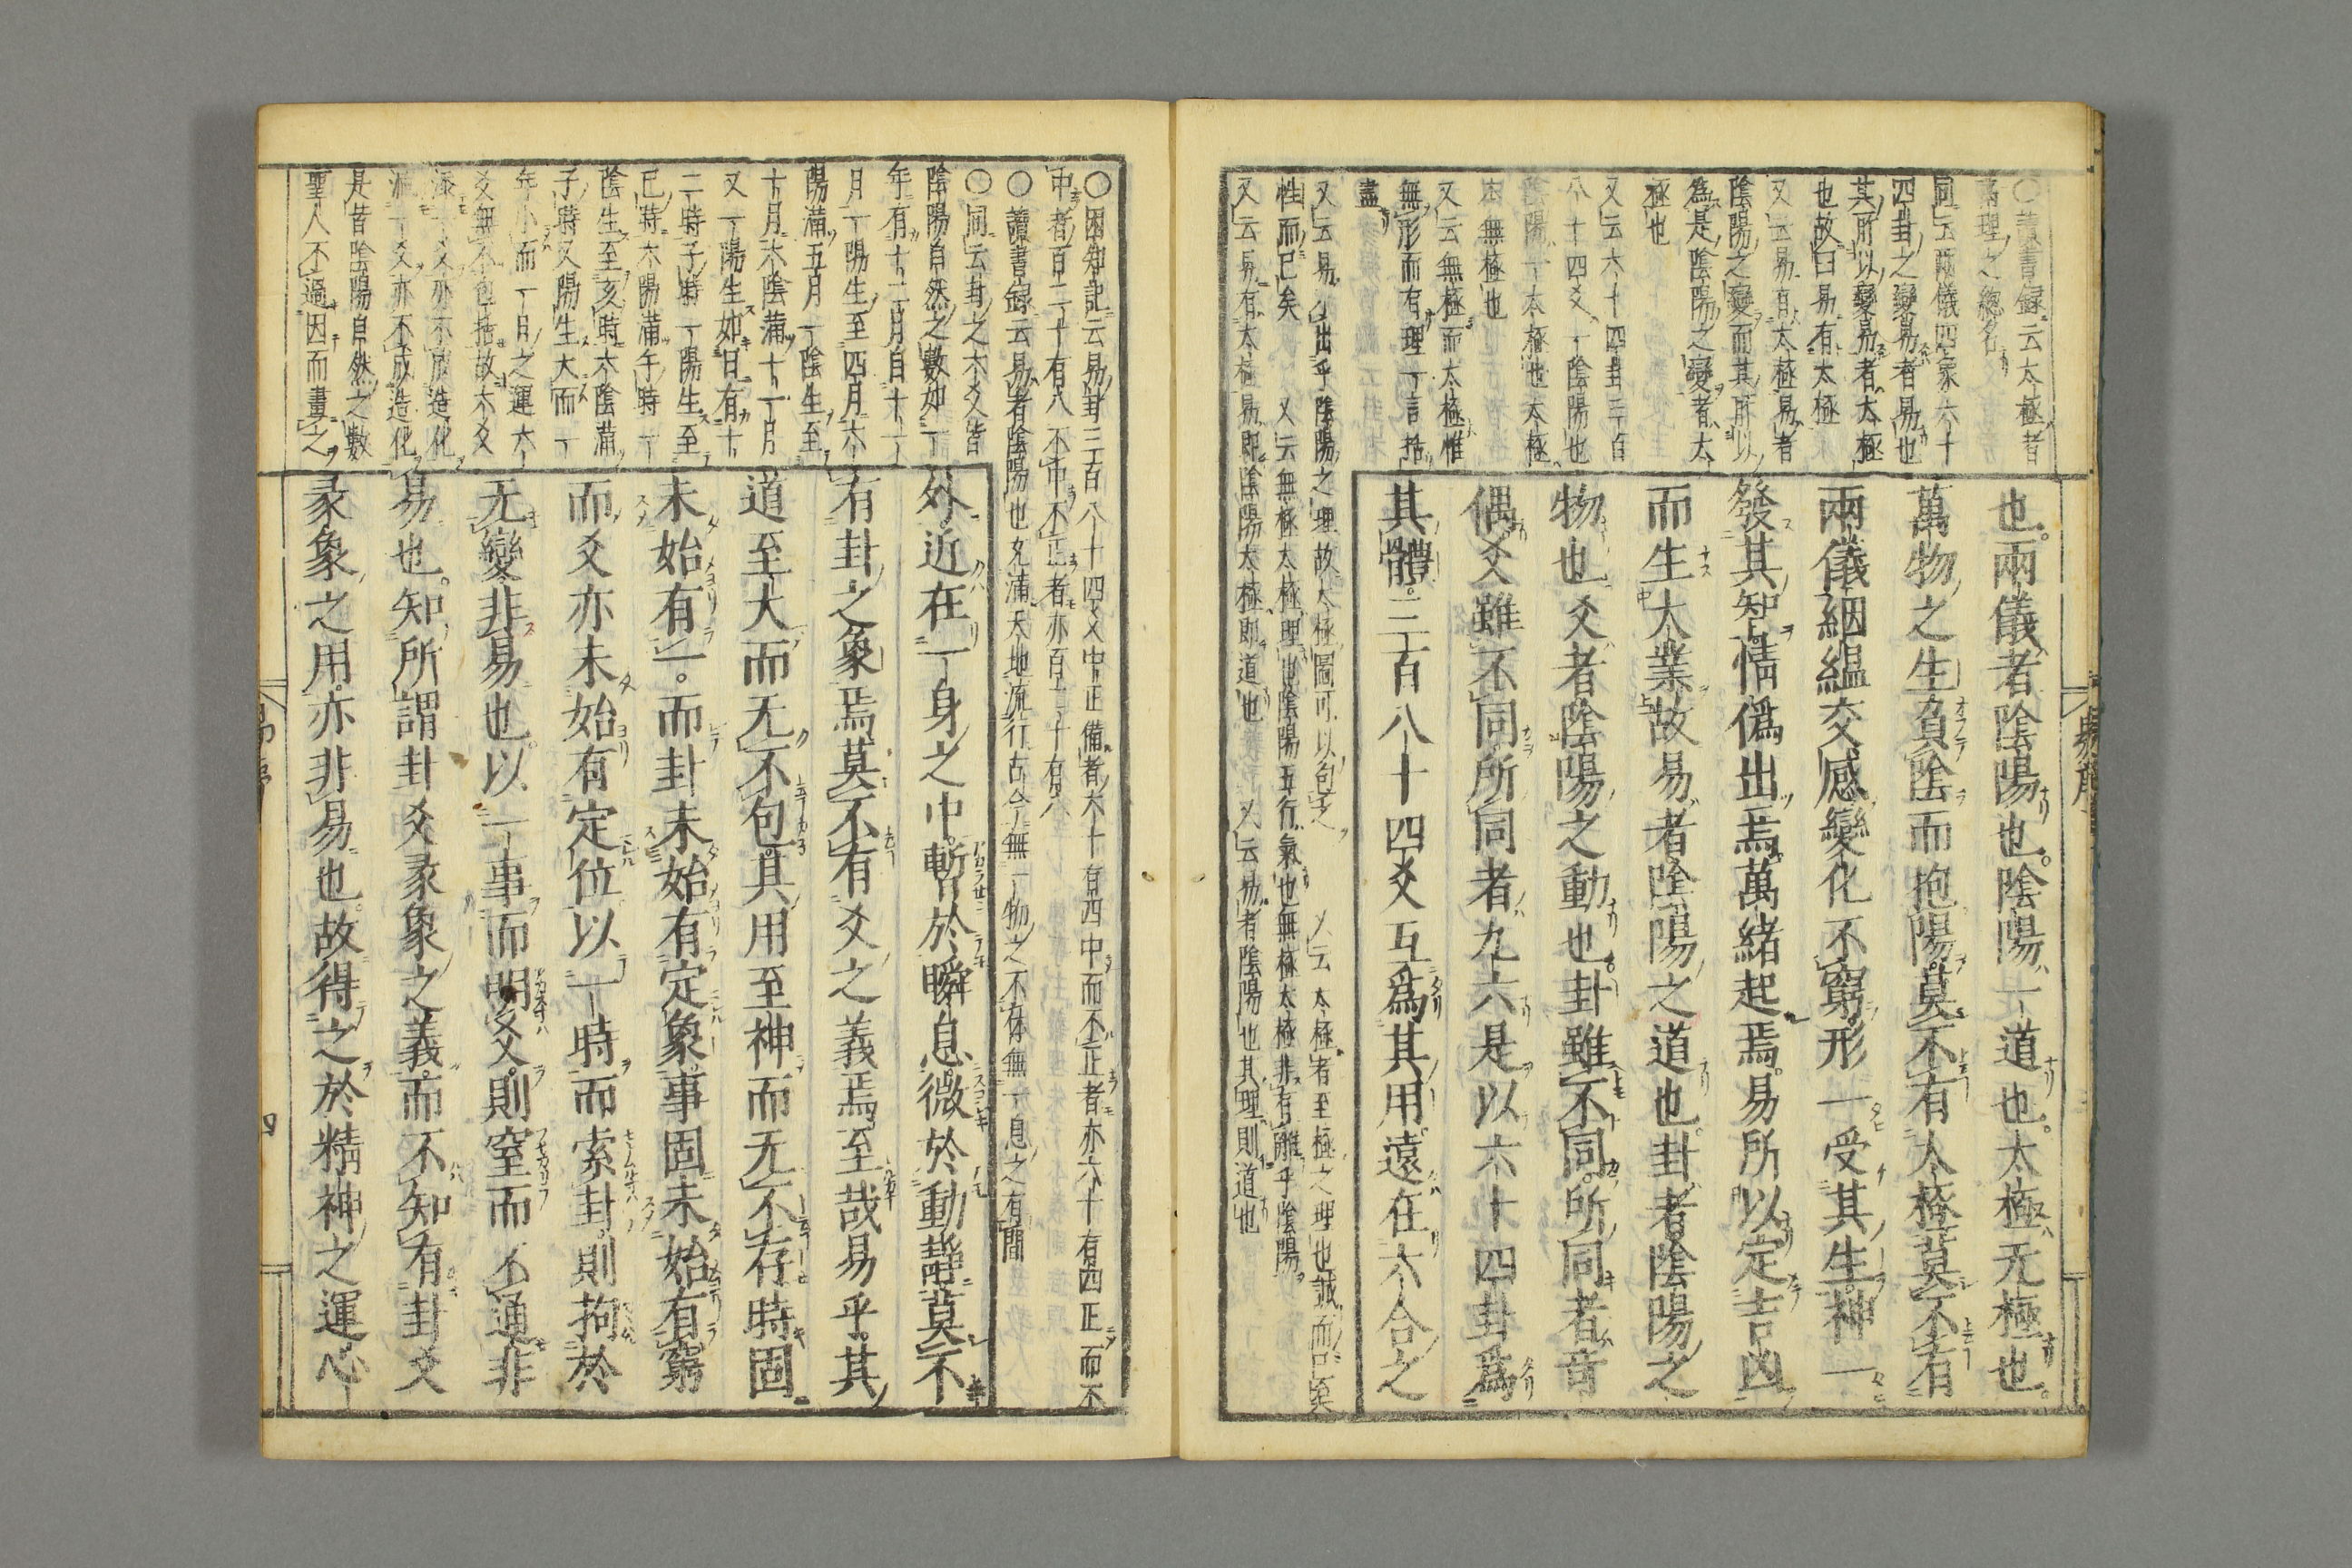 也兩儀者陰陽也陰陽一道也太極无極也
萬物之生負陰而抱陽莫不有太極莫不有
兩儀絪縕交感變化不窮形一受其生神一
發其知情偽出焉萬緒起焉易所以定吉凶
而生大業故易者陰陽之道也卦者陰陽之
物也爻者陰陽之動也卦雖不同所同者奇
偶爻雖不同所同者九六是以六十四卦爲
其體三百八十四爻互爲其用遠在六合之
○讀書録云太極者
萬理之總名
同云兩儀四象六十
四卦之變易者易也
其所以變易者太極
也故曰易有太極
又云易有太極易者
陰陽之變而其所以
為是陰陽之變者太
極也
又云六十四卦三百
八十四爻一陰陽也
陰陽一太極也太極
本無極也
又云無極而太極惟
無形而有理一言括
盡
又云易以出乎陰陽之理故太極圖可以包之 又云太極者至極之理也誠而已矣
性而已矣 又云無極太極理也陰陽五行氣也無極太極非有離乎陰陽
又云易有太極易即陰陽太極即道也 又云易者陰陽也其理則道也
○困知記云易卦三百八十四爻中正備者六十有四中而不正者亦六十有四正而不
中者百二十有八不中不正者亦百二十有八
○讀書録云易者陰陽也充滿天地流行古今無一物之不有体無一息之有間
○同云卦之六爻皆
陰陽自然之數如一
年有十二月自十一
月一陽生至四月六
陽滿五月一陰生至
十月六陰滿十一月
又一陽生如日有十
二時子時一陽生至
巳時六陽滿午時一
陰生至亥時六陰滿
子時又陽生大而一
年小而一月之運六
爻無不包括故六爻
添一爻亦不成造化
減一爻亦不成造化
是皆陰陽自然之數
聖人不過因而畫之
外近在一身之中暫於瞬息微於動靜莫不
有卦之象焉莫不有爻之義焉至哉易乎其
道至大而无不包其用至神而无不存時固
未始有一而卦未始有定象事固未始有窮
而爻亦未始有定位以一時而索卦則拘於
无變非易也以一事而明爻則窒而不通非
易也知所謂卦爻彖象之義而不知有卦爻
彖象之用亦非易也故得之於精神之運心
易序
四